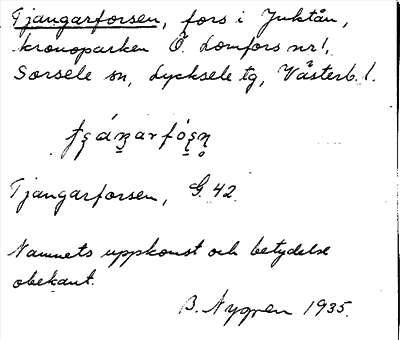 Tjangarforsen, fors i Juktån,
kronoparken Ö. Lomfors nr 1,
Sorsele sn, Lycksele tg, Västerb. l.
Tjangarforsen, G. 42.
Namnets uppkomst och betydelse
obekant.
B. Nygren 1935.